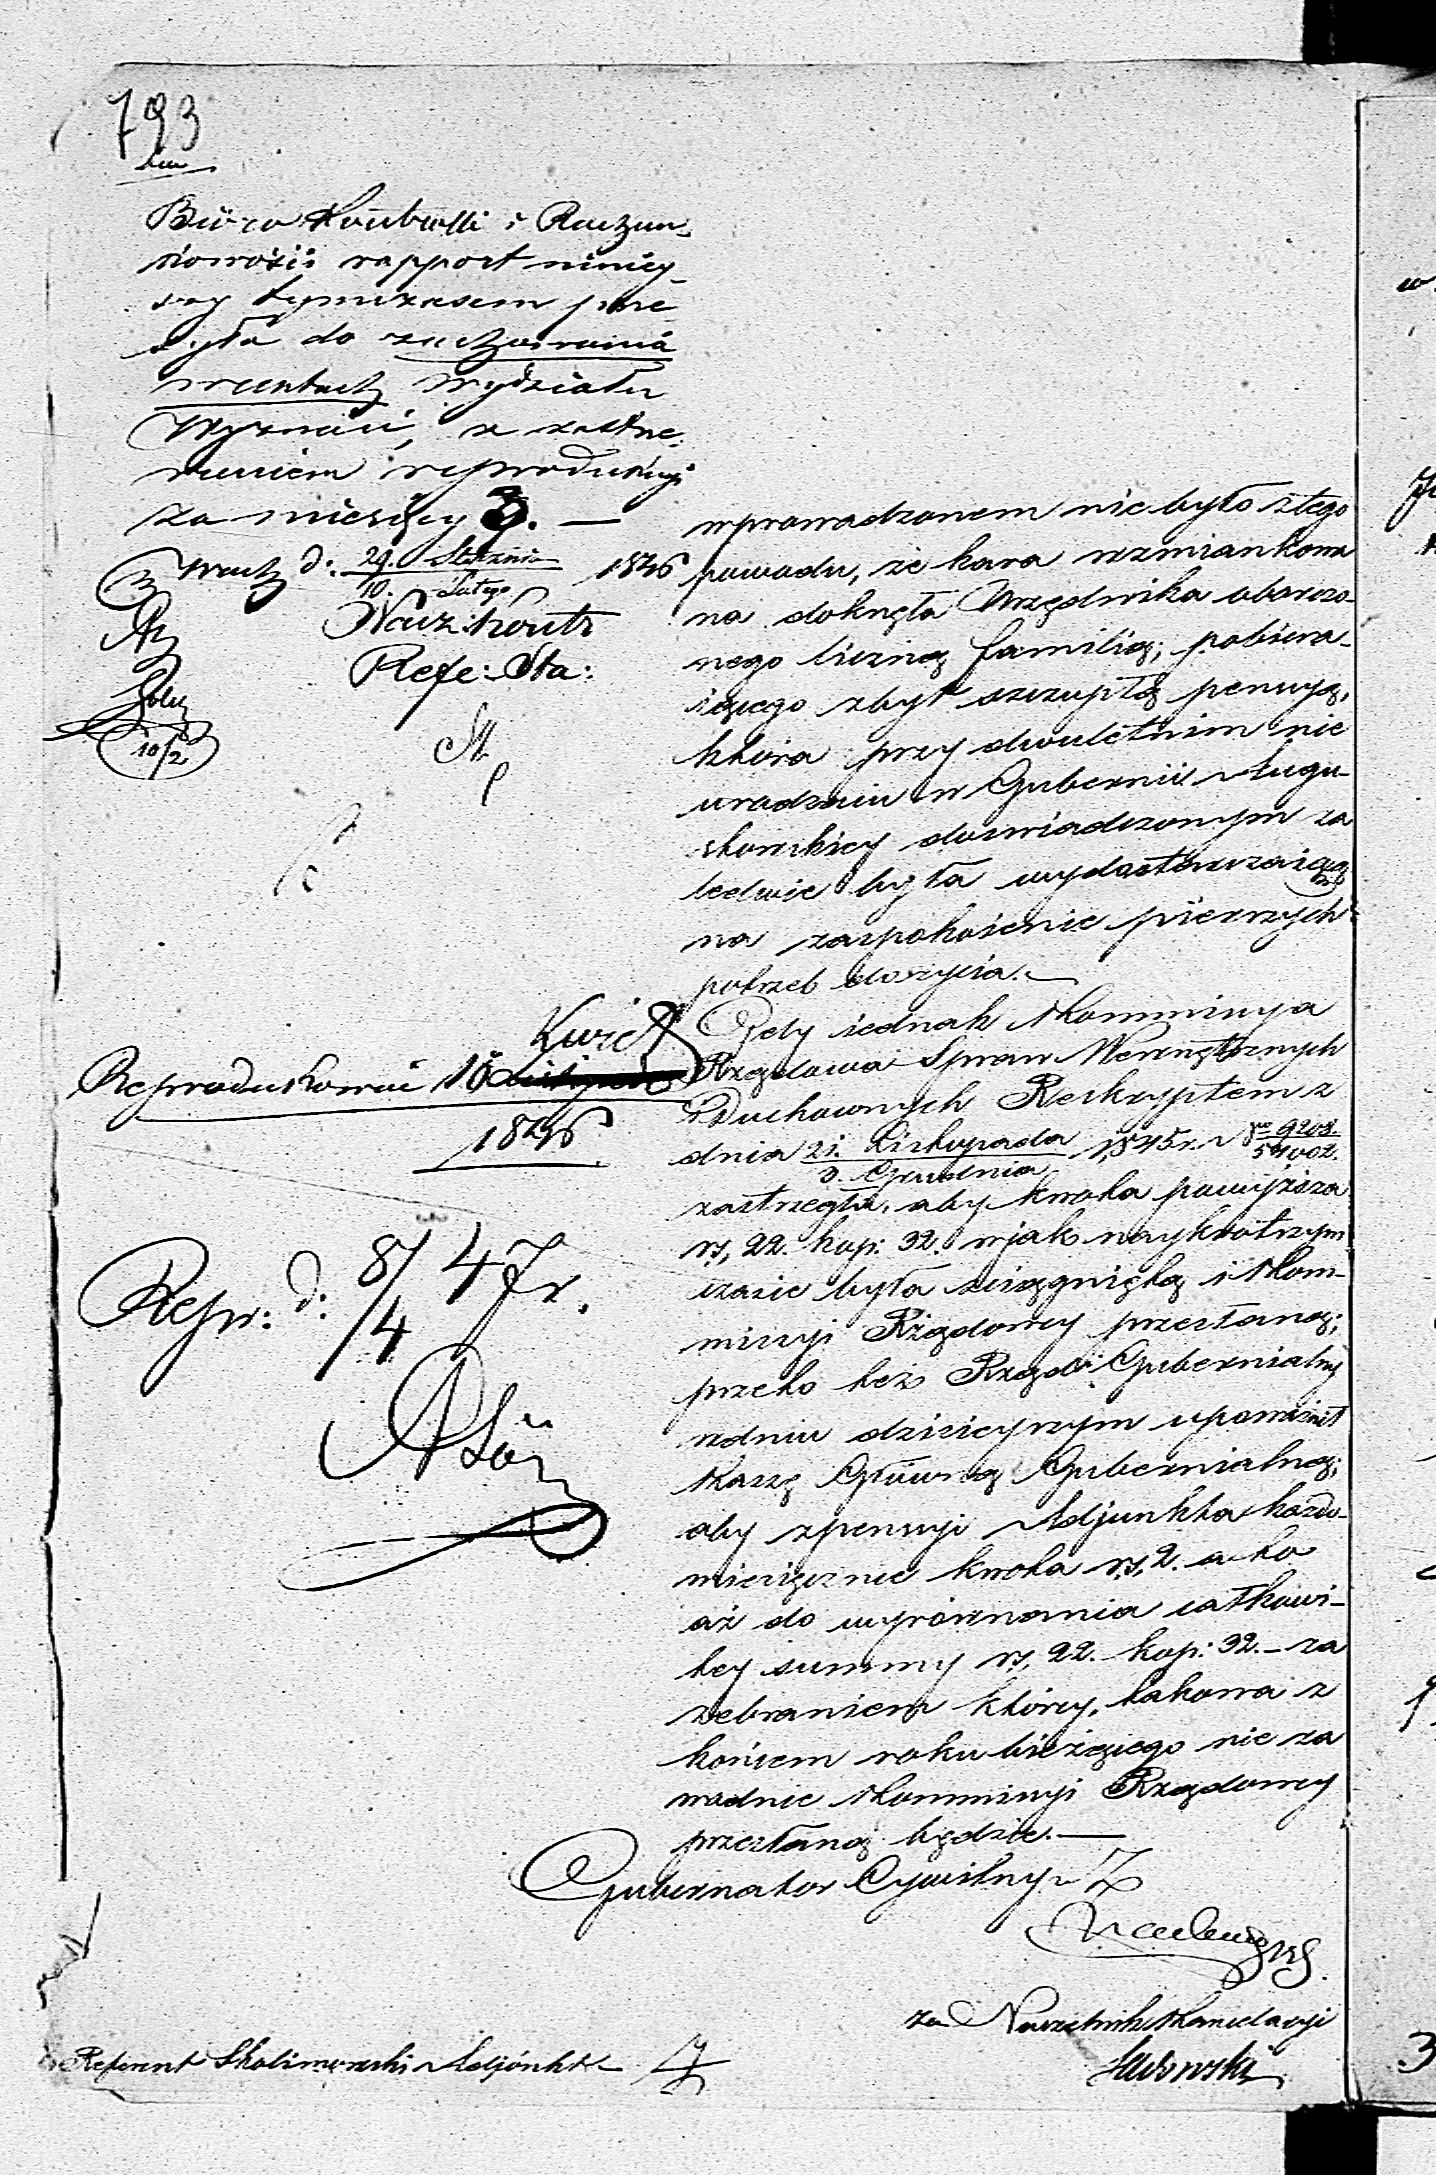 793
Biuro Kontrolli i Rachun-
kowości rapport niniey-
szy tymczasem prze-
syła do zachowania
w aktach Wydziału
Wyznań, z zastrze-
żeniem reprodukcyi
za miesięcy 3. —
w Warsz. d: 29. Stycznia / 10. Lutego 1846
Nacz: Kontr
Refe: Sta:
10/2
Reprodukować 10 Kwiet
1846
Repr: d: 8/4 47 r.
wprowadzonem nie było z tego
powodu, że kara wzmiankowa
na dotknęła Urzędnika obarczo-
nego liczną familią, pobiera-
iącego zbyt szczupłą pensyą,
która przy dwuletnim nie
urodzaiu w Gubernii Augu-
stowskiey doświadczonym za
ledwie była wydostarczaiącą
na zaspokoienie pierwszych
potrzeb do życia. —
Gdy iednak Kommissya
Rządowa Spraw Wewnętrznych
i Duchownych Reskryptem z
dnia 21. Listopada / 3. Grudnia 1845 r. N° 9208. / 54002.
zastrzegła, aby kwota powyższa
rs, 22. kop: 32. w jak naykrótszym
czasie była ściągniętą i Kom-
missyi Rządowey przesłaną;
przeto też Rząd Gubernialny
w dniu dzisieyszym upomniał
Kassę Główną Gubernialną;
aby z pensyi Adjunkta każdo-
miesięcznie kwota rs, 2. a to
aż do wyrównania całkowi-
tey summy rs, 22. kop: 32. — za
zebraniem którey, takowa z
końcem roku bieżącego nie za
wodnie Kommissyi Rządowey
przesłaną będzie. —
Gubernator Cywilny
za Naczelnik Kancelaryi
Referent Skolimowski Adjunkt